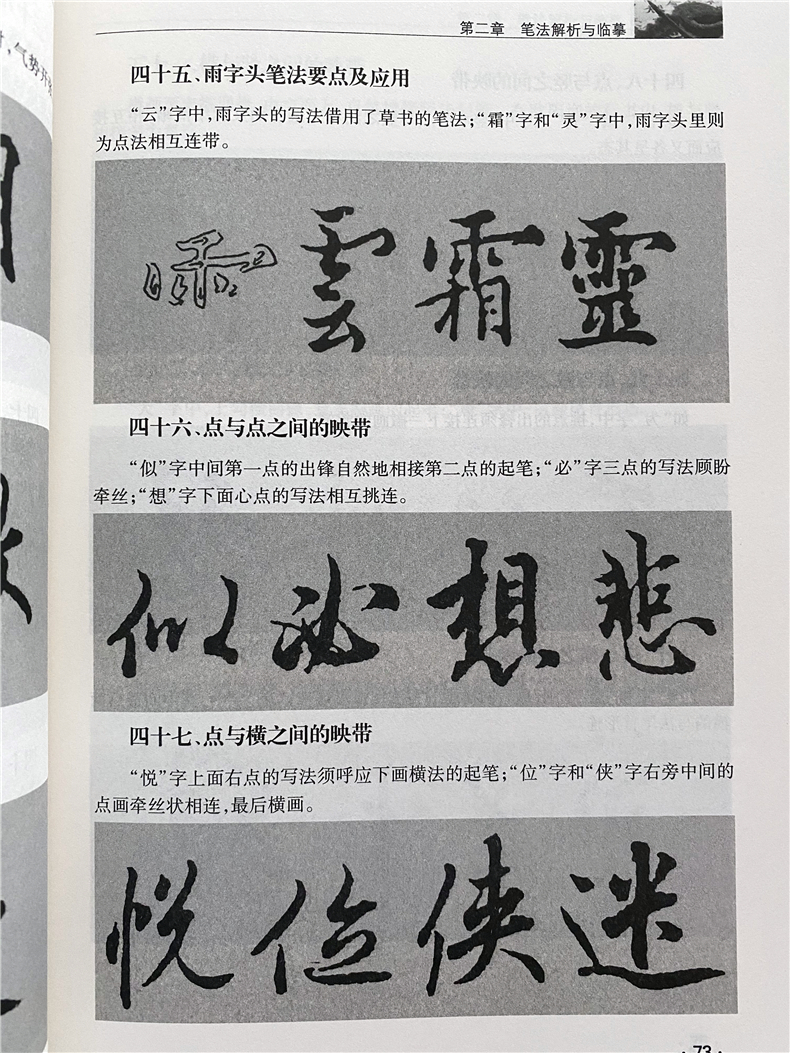 第二章 笔法解析与临摹
四十五、雨字头笔法要点及应用
“云”字中,雨字头的写法借用了草书的笔法;“霜”字和“灵”字中,雨字头里则
为点法相互连带。
雲霜靈
四十六、点与点之间的映带
“似”字中间第一点的出锋自然地相接第二点的起笔;“必”字三点的写法顾盼
牵丝;“想”字下面心点的写法相互挑连。
似必想悲
四十七、点与横之间的映带
“悦”字上面右点的写法须呼应下画横法的起笔;“位”字和“侠”字右旁中间的
点画牵丝状相连,最后横画。
悦位侠迷
·73·